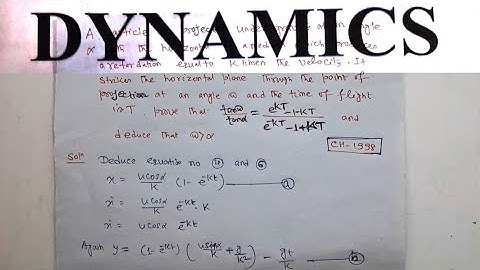 DYNAMICS
A particle is projected under gravity at an angle
α with the horizontal in a medium which produces
a retardation equal to K times the velocity. It
strikes the horizontal plane through the point of
projection at an angle ω and the time of flight
is T, prove that tanω/tanα = (e^KT -1-KT)/(e^-KT -1+KT) and
deduce that ω>α
CH-1998
Solⁿ Deduce equation no ④ and ⑥
x = ucosα/K (1- e^-kt)
ẋ = ucosα/K e^-kt . K
ẋ = ucosα e^-kt
Again y = (1- e^-kt) (usinα/K + g/K²) - gt/K